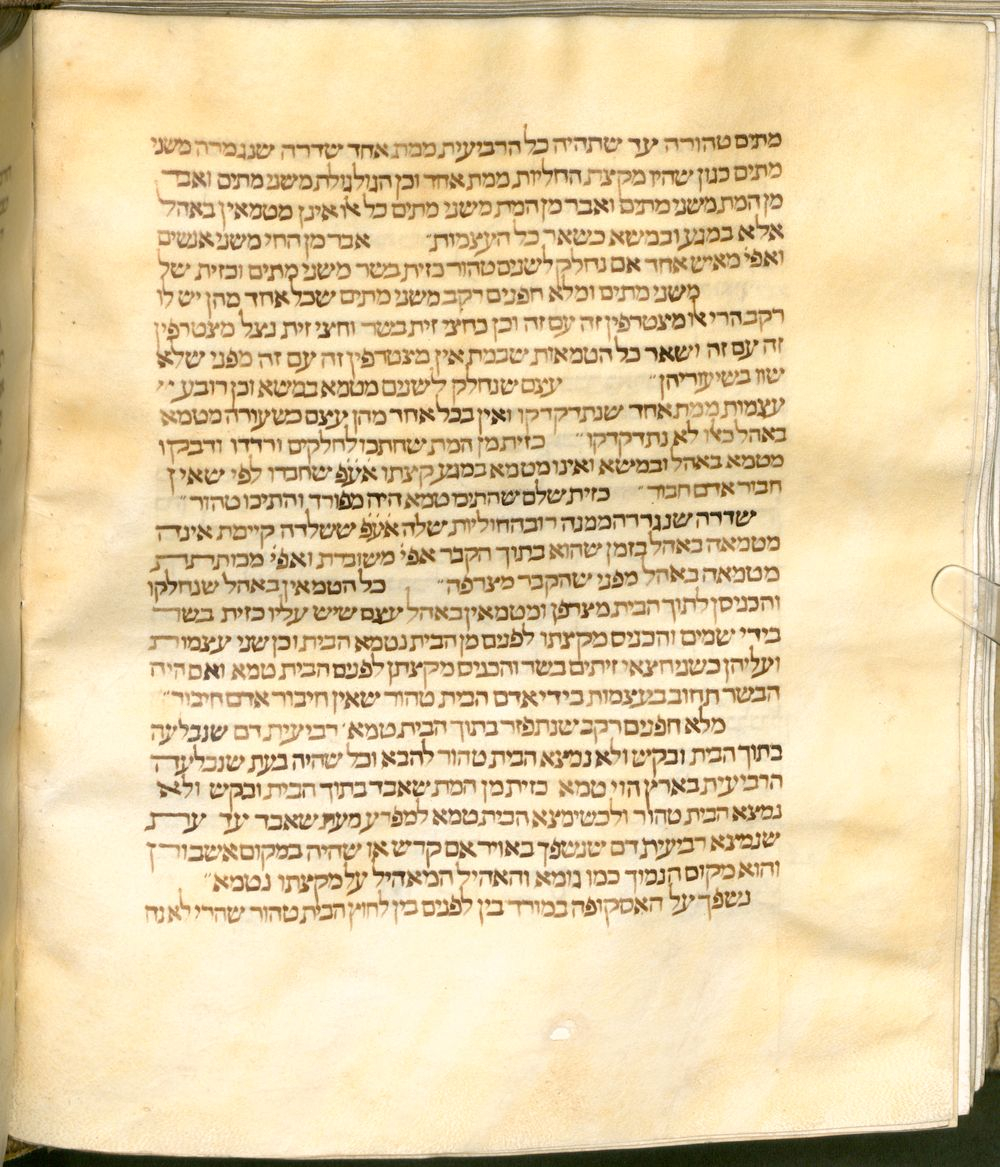 מתים טהורה עד שתהיה כל הרביעית ממת אחד שדרה שנגמרה משני
מתים כגון שהיו מקצת החליות ממת אחד וכן הגולגולת משני מתים ואבר
מן המת משני מתים ואבר מן המת משני מתים כל או אינן מטמאין באהל
אלא במגע ובמשא כשאר כל העצמות״ אבר מן החי משני אנשים
ואפי׳ מאיש אחד אם נחלק לשנים טהור כזית בשר משני מתים וכזית של
משני מתים ומלא חפנים רקב משני מתים שכל אחד מהן יש לו
רקב הרי או מצטרפין זה עם זה וכן כחצי זית בשר וחצי זית נצל מצטרפין
זה עם זה ושאר כל הטמאות שבמת אין מצטרפין זה עם זה מפני שלא
שוו בשיעוריהן״ עצם שנחלק לשנים מטמא במשא וכן רובע
עצמות ממת אחד שנתדקדקו ואין בכל אחד מהן עצם כשעורה מטמא
באהל כאו לא נתדקדקו״ כזית מן המת שחתכו לחלקים ורדדו ודבקו
מטמא באהל ובמשא ואינו מטמא במגע קצתו אע״פ שחברו לפי שאין
חבור אדם חבור״ כזית שלם שהתיכו טמא היה מפורד והתיכו טהור״
שדרה שנגררה ממנה רוב החוליות שלה אע״פ ששלדה קיימת אינה
מטמאה באהל בזמן שהוא בתוך הקבר אפי׳ משוברת ואפי׳ מכותתת
מטמאה באהל מפני שהקבר מצרפה״ כל הטמאין באהל שנחלקו
והכניסן לתוך הבית מצרפן ומטמאין באהל עצם שיש עליו כזית בשר
בידי שמים והכניס מקצתו לפנים מן הבית נטמא הבית וכן שני עצמות
ועליהן כשני חצאי זיתים בשר והכניס מקצתן לפנים הבית טמא ואם היה
הבשר תחוב בעצמות בידי אדם הבית טהור שאין חיבור אדם חיבור״
מלא חפנים רקב שנתפזר בתוך הבית טמא׳ רביעית דם שנבלעה
בתוך הבית ובקש ולא נמצא הבית טהור להבא וכל שהיה בעת שנבלעה
הרביעית בארץ הוי טמא כזית מן המת שאבד בתוך הבית ובקש ולא
נמצא הבית טהור ולכשימצא הבית טמא למפרע מעת שאבד עד עת
שנמצא רביעית דם שנשפך באויר אם קדש או שהיה במקום אשבורן
והוא מקום הנמוך כמו גומא והאהיל המאהיל על מקצתו נטמא״
נשפך על האסקופה במורד בין לפנים בין לחוץ הבית טהור שהרי לא נח